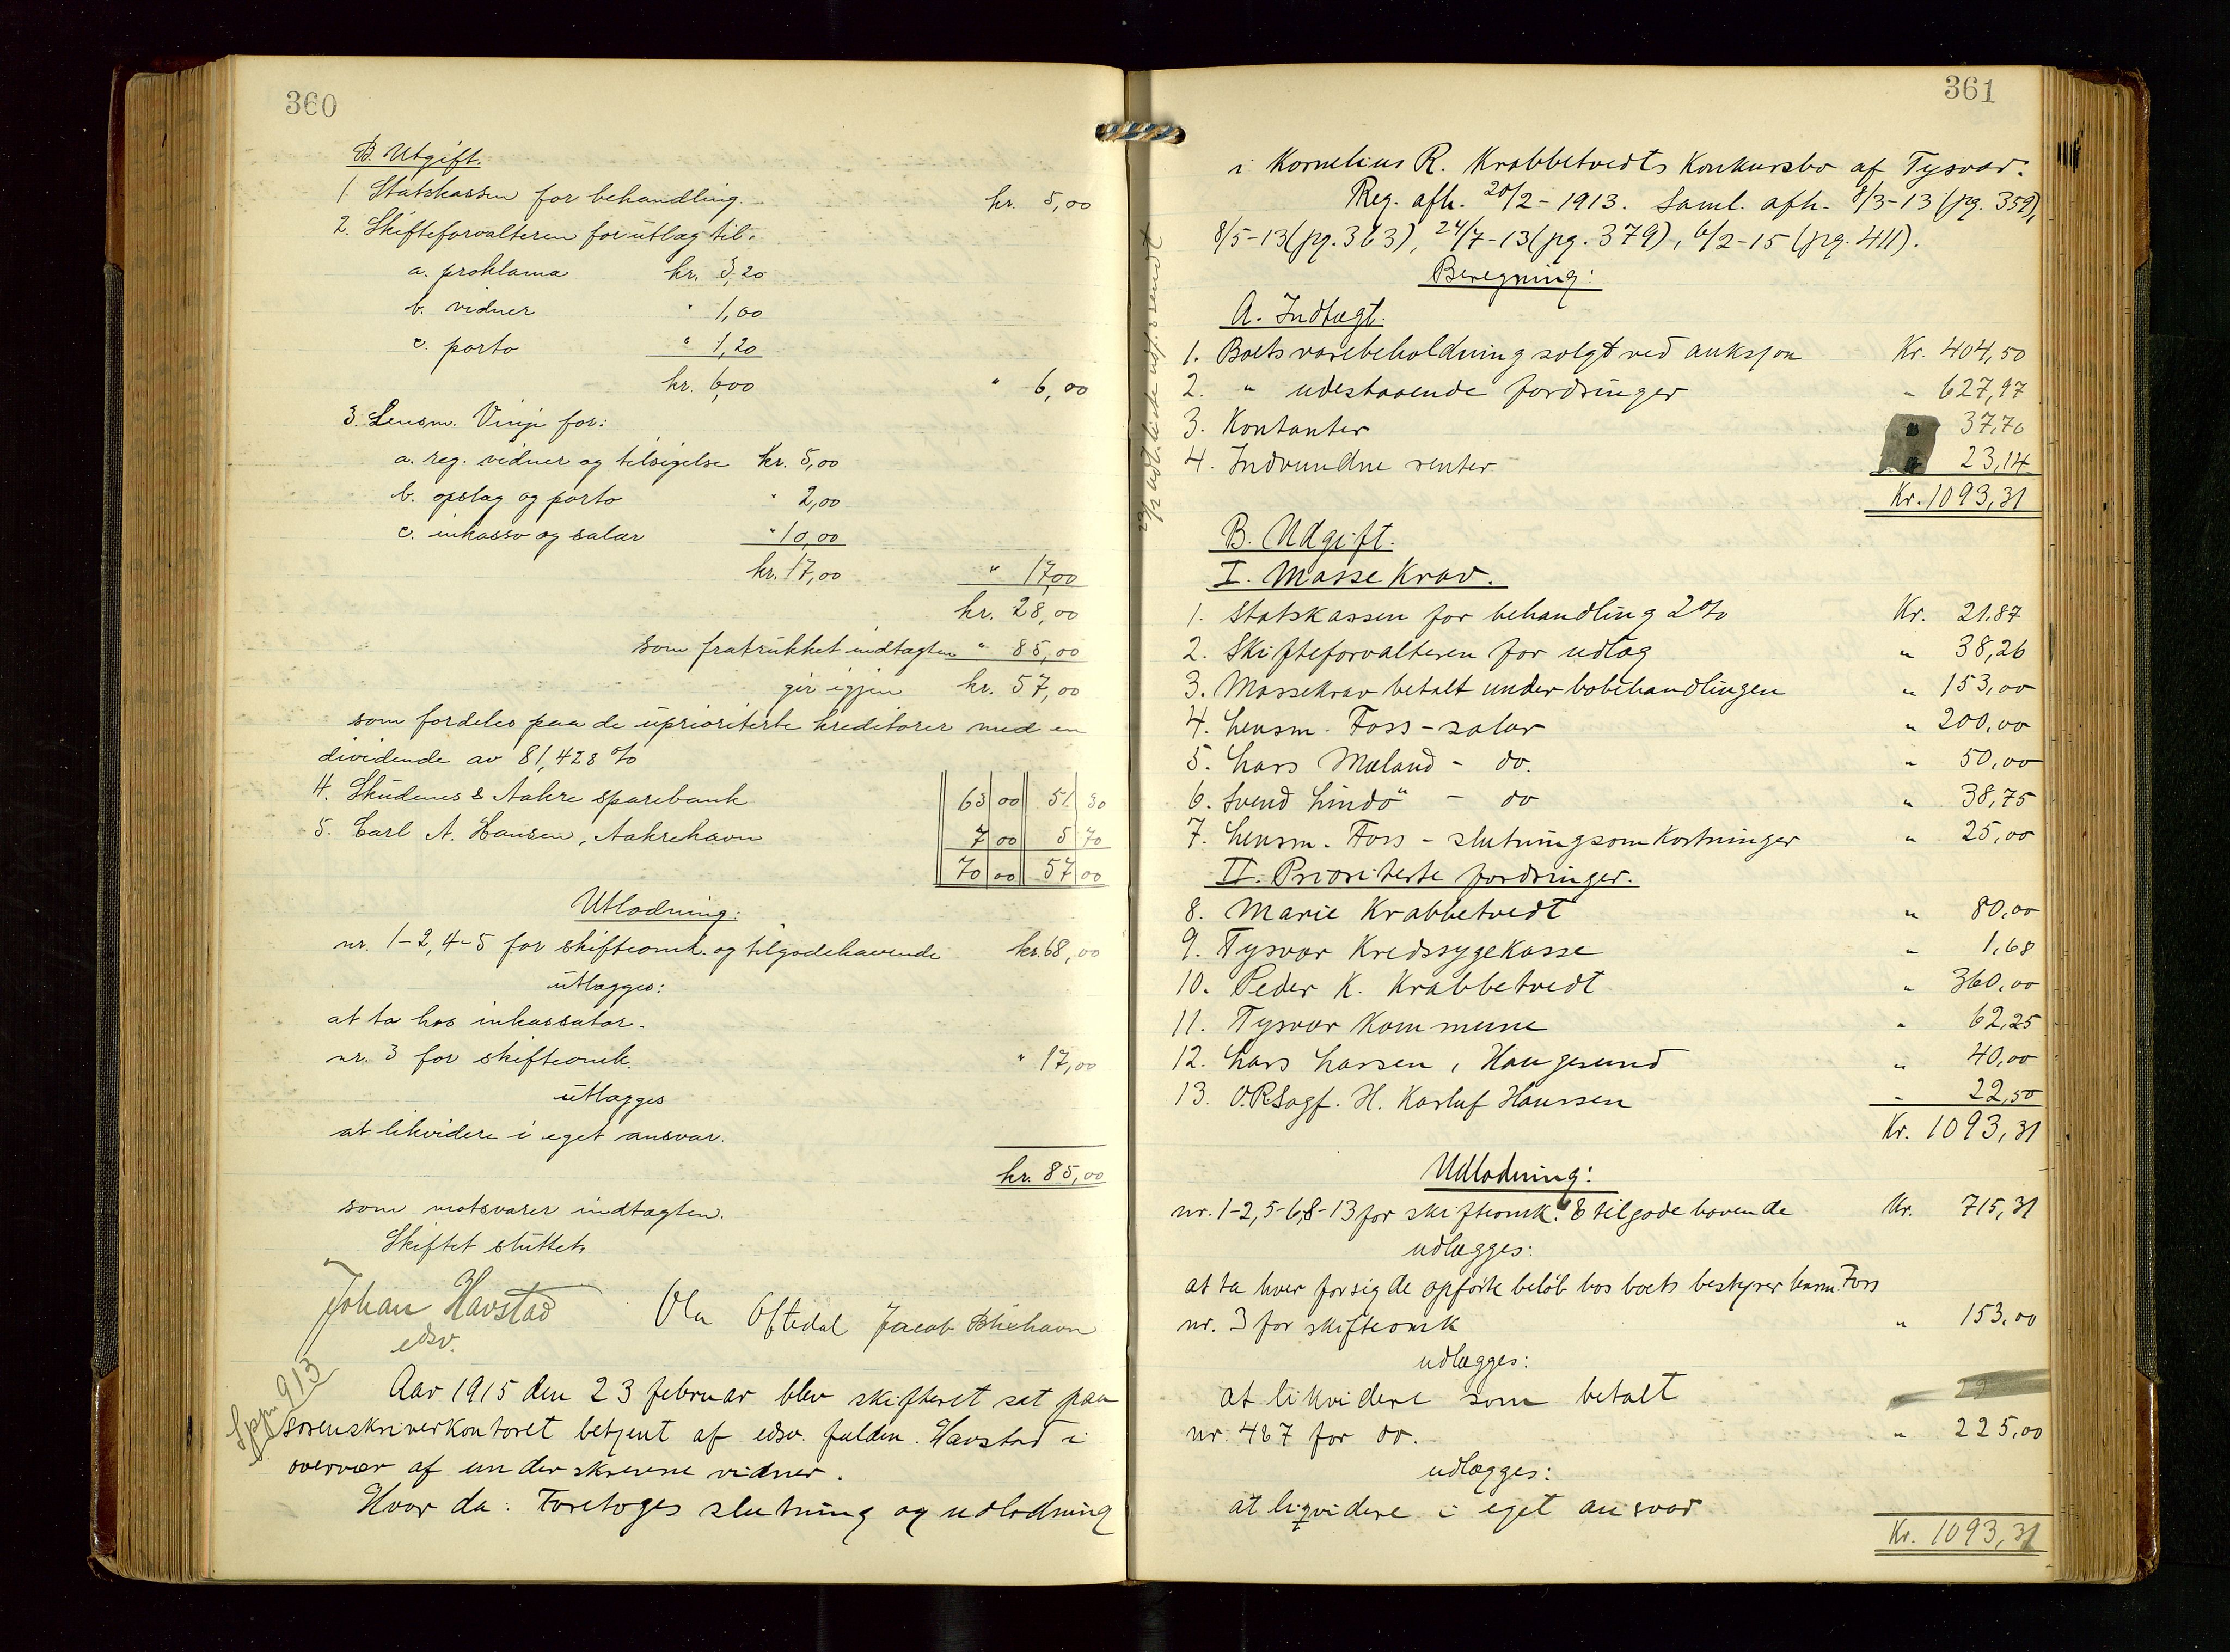 360
B. Utgift.
1. Statskassen for behandling. kr. 5,00
2. Skifteforvalteren for utlæg til:
a. proklama kr. 3,20
b. vidner " 1,00
c. porto " 1,20
kr. 6,00 " 6,00
3. Lensm. Vinje for:
a. reg. vidner og tilsigelse kr. 5,00
b. opslag og porto " 2,00
c. inkasso og salær " 10,00
kr. 17,00 " 17,00
kr. 28,00
som fratrukket indtægten " 85,00
gir igjen kr. 57,00
som fordeles paa de uprioriterte kreditorer med en
dividende av 81,428 %
4. Skudenes & Aakre sparebank 63 00 51 30
5. Carl A. Hansen, Aakrehavn 7 00 5 70
70 00 57 00
Utlodning:
nr. 1-2, 4-5 for skifteomk. og tilgodehavende kr. 68,00
utlægges:
at ta hos inkassator.
nr. 3 for skifteomk. " 17,00
utlægges
at likvidere i eget ansvar.
kr. 85,00
som motsvarer indtægten.
Skiftet sluttet.
Johan Havstad Ola Oftedal Jacob Blixhavn
edsv.
Sppn 913
Aar 1915 den 23 februar blev skifteret sat paa
sorenskriverkontoret betjent af edsv. fuldm. Havstad i
overvær af underskrevne vidner.
Hvor da: Foretoges slutning og udlodning
361
i Kornelius R. Krabbetvedts Konkursbo af Tysvær.
Reg. afh. 20/2-1913. Saml. afh. 8/3-13 (pg. 359),
8/5-13 (pg. 363), 24/7-13 (pg. 379), 6/2-15 (pg. 411).
Beregning:
A. Indtægt.
1. Boets varebeholdning solgt ved auksjon Kr. 404,50
2. " udestaaende fordringer " 627,97
3. Kontanter " 37,70
4. Indvundne renter " 23,14
Kr. 1093,31
B. Udgift.
I. Massekrav.
1. Statskassen for behandling 2% Kr. 21.87
2. Skifteforvalteren for udlæg " 38,26
3. Massekrav betalt under bobehandlingen " 153,00
4. Lensm. Foss - salær " 200,00
5. Lars Mæland - do. " 50,00
6. Svend Lindø - do " 38,75
7. Lensm. Foss - slutningsomkostninger " 25,00
II. Prioriterte fordringer.
8. Marie Krabbetvedt " 80,00
9. Tysvær Kredssygekasse " 1,68
10. Peder K. Krabbetvedt " 360,00
11. Tysvær Kommune " 62,25
12. Lars Larsen, Haugesund " 40,00
13. O.R.Sagf. H. Karluf Hanssen " 22,50
Kr. 1093,31
Udlodning:
nr. 1-2, 5-6, 8-13 for skifteomk. & tilgodehavende Kr. 715,31
udlægges:
at ta hver for sig de opførte beløb hos boets bestyrer lensm. Foss
nr. 3 for skifteomk " 153,00
udlægges:
at likvidere som betalt
nr. 4 & 7 for do. " 225,00
udlægges:
at liqvidere i eget ansvar
Kr. 1093,31